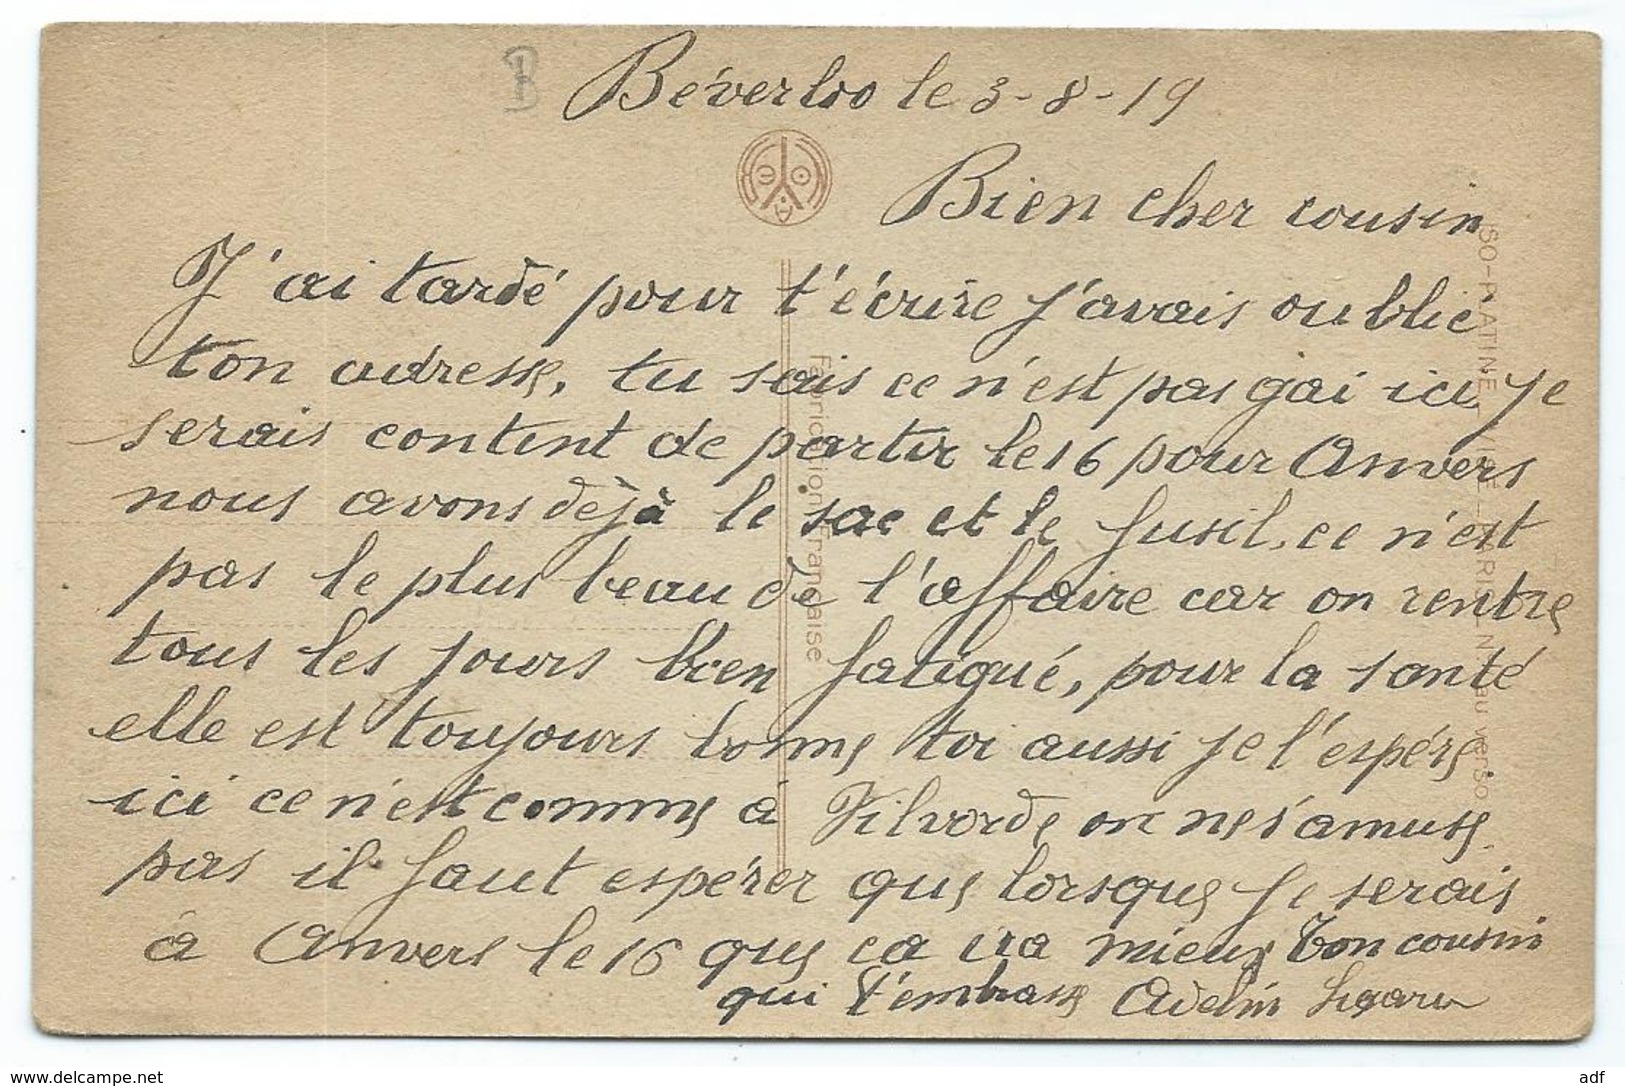 B
Béverloo le 3-8-19
Bien cher cousin
J'ai tardé pour t'écrire j'avais oublié
ton adresse, tu sais ce n'est pas gai ici, je
serais content de partir le 16 pour Anvers
nous avons dèjà le sac et le fusil, ce n'est
pas le plus beau de l'affaire car on rentre
tous les jours bien fatigué, pour la santé
elle est toujours bonne toi aussi je l'espére.
ici ce n'est comme à Vilvorde on ne s'amuse
pas il faut espérer que lorsque je serais
à Anvers le 16 que ca ira mieux Ton cousin
qui t'embrasse Adelin
Fabrication Française
au verso
www.delcampe.net
adf